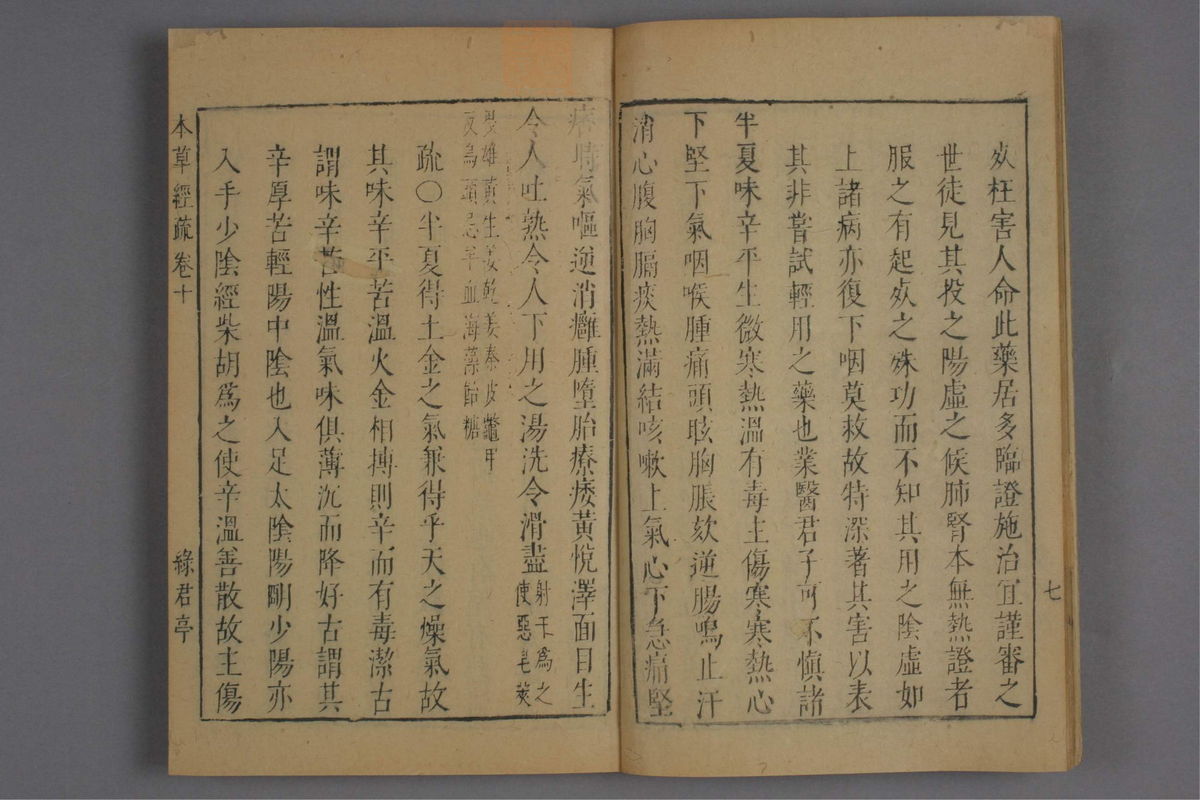 七
必枉害人命此藥居多臨證施治宜謹審之
世徒見其投之陽虛之候肺腎本無熱證者
服之有起必之殊功而不知其用之陰虛如
上諸病亦復下咽莫救故特深著其害以表
其非嘗試輕用之藥也業醫君子可不慎諸
半夏味辛平生微寒熱溫有毒主傷寒寒熱心
下堅下氣咽喉腫痛頭眩胸脹欬逆腸鳴止汗
消心腹胸膈痰熱滿結咳嗽上氣心下急痛堅
痞時氣嘔逆消癰腫墮胎療痿黃悅澤面目生
令人吐熟令人下用之湯洗令滑盡射干爲之使惡皂莢
畏雄黃生姜乾姜秦皮龜甲
反烏頭忌羊血海藻飴糖
疏〇半夏得土金之氣兼得乎天之燥氣故
其味辛平苦溫火金相搏則辛而有毒潔古
謂味辛苦性溫氣味俱薄沉而降好古謂其
辛厚苦輕陽中陰也入足太陰陽明少陽亦
入手少陰經柴胡爲之使辛溫善散故主傷
本草經疏卷十
綠君亭